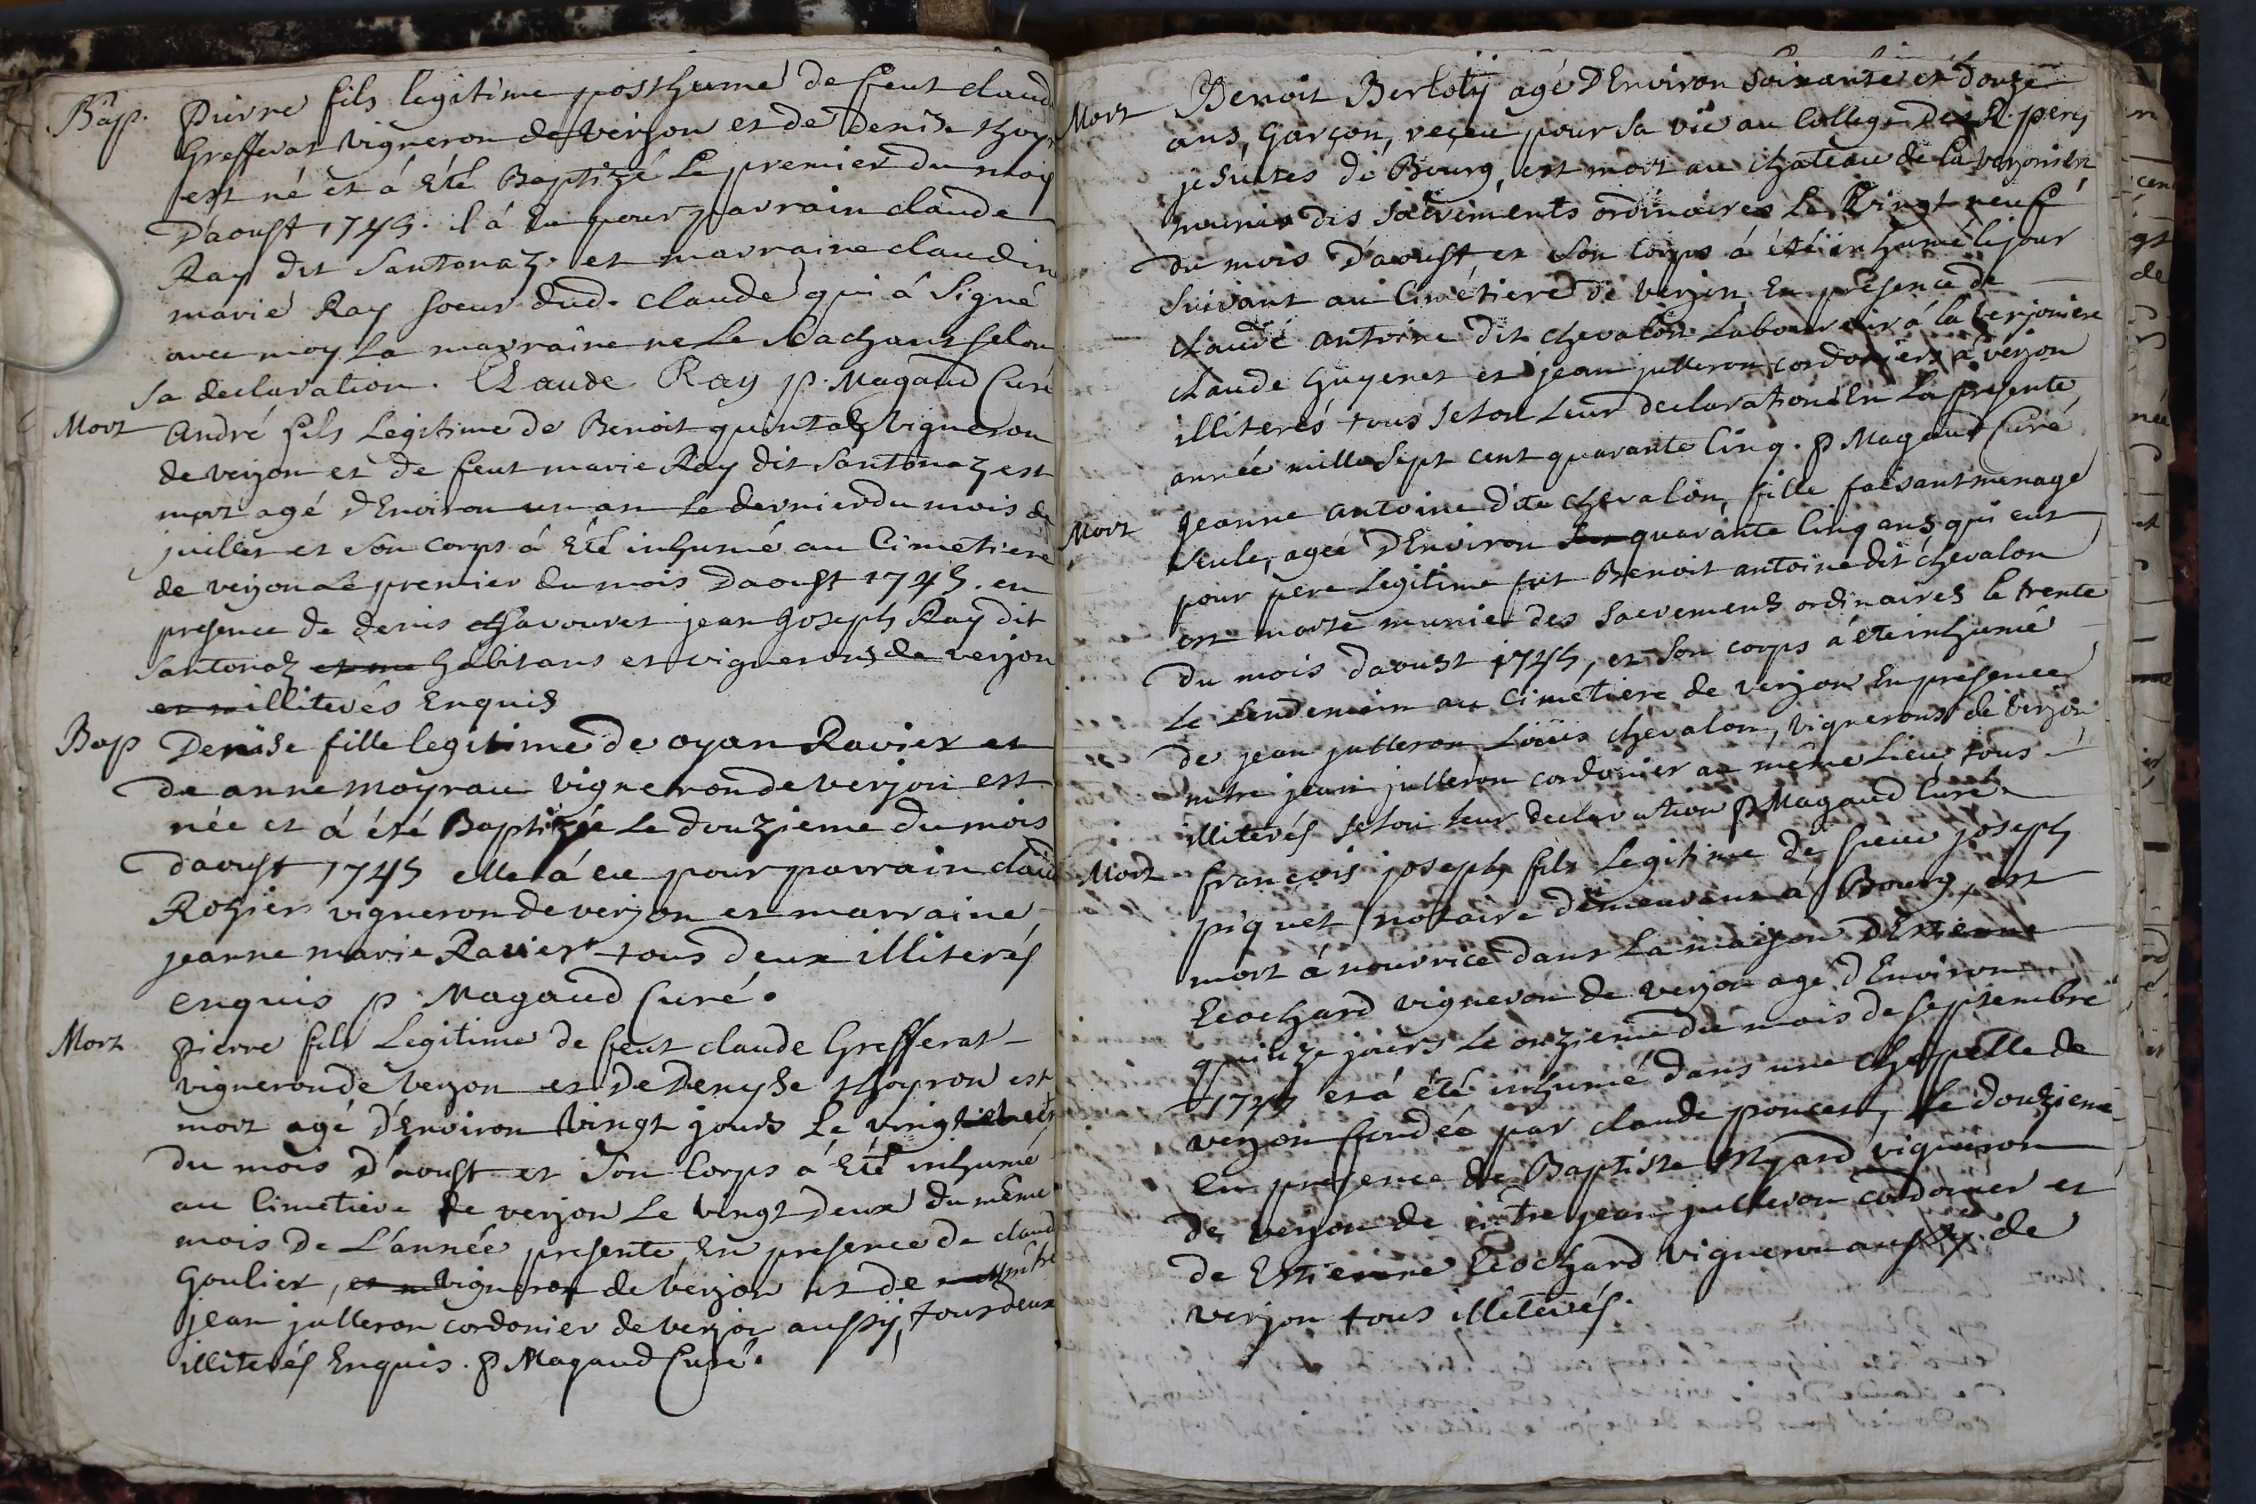 Bap. Pierre fils legitime posthume de feut claude
Grefferat vigneron de verjon et de Denise thoyr
est né et á été Baptizé Le premier du mois
Daoust 1745. il á Eu pour parrain claude
Ray dit Santonaz et marraine claudin
marie Ray soeur dud. claude qui á Signé
avec moy la marraine ne Le Sachant selon
sa declaration. Claude Ray p. Magaud Curé
Mort André fils Legitime de Benoit quintal vigneron
de verjon et de feut marie Ray dit Santonaz est
mort agé d'Environ un an Le dernier du mois de
juillet et son corps á Eté inhumé au Cimetiere
de verjon Le premier du mois Daoust 1745. en
presence de denis chavouret jean Joseph Ray dit
Santonaz habitans et vignerons de verjon
illiterés Enquis
Bap Denise fille legitime de oyan Ravier et
de anne moyrau vigneron de verjon est
née et á été Baptizée Le douzieme du mois
daoust 1745 elle á eu pour parrain claud
Rozier vigneron de verjon et marraine
jeanne marie Ravier tous deux illiterés
enquis p Magaud Curé.
Mort pierre fils Legitime de feut claude Grefferat
vigneron de verjon et De Denyse thoyron est
mort agé d'Environ vingt jours Le vingt
du mois d'aoust et son Corps á Eté inhumé
au Cimetiere de verjon Le vingt deux du même
mois De L'année presente, En presence de claud
Goulier, vigneron de verjon et de mtre
jean julleron cordonier de verjon aussy, tous deux
illiterés Enquis. p Magaud Curé.
Mort Benoit Bertoly agé D'Environ soixante et douze
ans, Garçon, reçeu pour sa vie au College Des R. peres
jesuites de Bourg, est mort au chateau de la verjoniere
munis des sacrements ordinaires Le vingt neuf
du mois d'aoust et son Corps á été inhumé le jour
suivant au Cimetiere de verjon En presence de
claude antoine dit chevalon Laboureur á la verjoniere
claude Guyenet et jean julleron cordoniers á verjon
illiterés tous selon Leur declaration En La presente
année mille sept cent quarante Cinq. p Magaud Curé
Mort Jeanne antoine dite chevalon, fille faisant menage
seule, ageé D'Environ quarante Cinq ans qui eut
pour pere Legitime fut Benoit antoine dit chevalon
est morte munie des sacremens ordinaires le trente
du mois daoust 1745, et son corps á eté inhumé
Le Lendemain au Cimetiere de verjon En presence
de jean julleron Loüis chevalon, vignerons de verjon
mtre jean julleron cordonier au même Lieu tous
illiterés selon leur declaration p Magaud Curé.
Mort françois joseph fils Legitime de sieur joseph
piquet notaire demeurant á Bourg, est
mort á nourrice dans La maison D'Estienne
Ecochard vigneron de verjon agé d'Environ
quinze jours Le onzieme du mois de septembre
1745 et á été inhumé dans une chapelle de
verjon fondée par claude poncet, Le douzieme
En presence de Baptiste Myard vigneron
de verjon de mtre jean julleron cordonier et
de Estienne Ecochard vigneron aussy de
verjon tous illiterés.